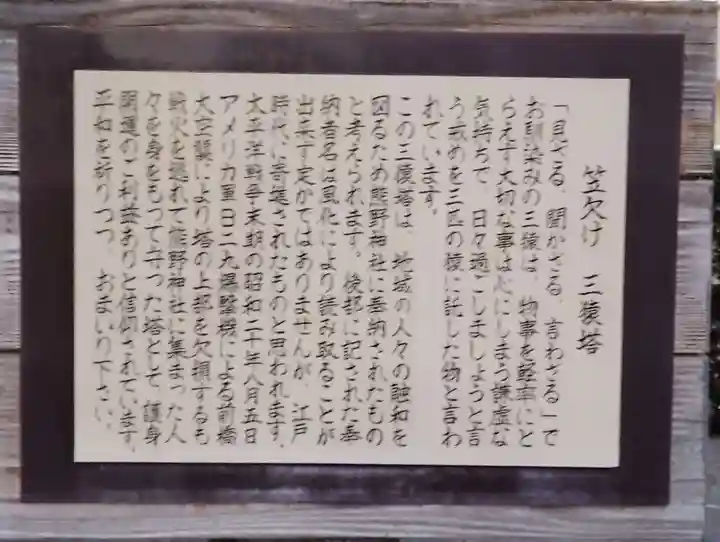 笠欠け 三猿塔
「見ざる、聞かざる、言わざる」で
お馴染みの三猿は、物事を軽率にと
らえず大切な事は心にしまう謙虚な
気持ちで、日々過ごしましょうと言
う戒めを三匹の猿に託した物と言わ
れています。
この三猿塔は、地域の人々の融和を
図るため熊野神社に奉納されたもの
と考えられます。後部に記された奉
納者名は風化により読み取ることが
出来ず定かではありませんが、江戸
時代に寄進されたものと思われます。
太平洋戦争末期の昭和二十年八月五日
アメリカ軍B二九爆撃機による前橋
大空襲により塔の上部を欠損するも
戦火を逃れて熊野神社に集まった人
々を身をもって守った塔とそ、護身
開運のご利益ありと信仰されています。
平和を祈りつつ、おまいり下さい。